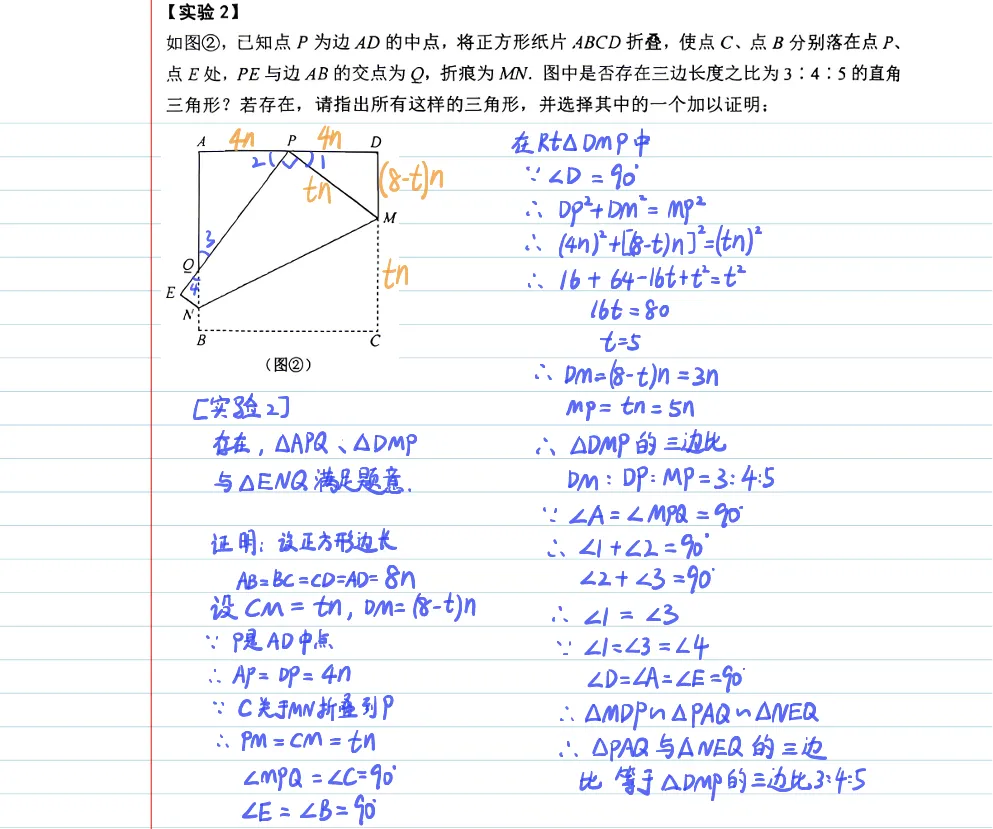 【实验2】
如图②，已知点 P 为边 AD 的中点，将正方形纸片 ABCD 折叠，使点 C、点 B 分别落在点 P、
点 E 处，PE 与边 AB 的交点为 Q，折痕为 MN. 图中是否存在三边长度之比为 3∶4∶5 的直角
三角形？若存在，请指出所有这样的三角形，并选择其中的一个加以证明；
A 4n P 4n D
2 1
tn (8-t)n
M
3
Q
4 tn
E
N
B C
（图②）
[实验2]
存在，△APQ、△DMP
与△ENQ 满足题意.
证明：设正方形边长
AB=BC=CD=AD=8n
设 CM=tn, DM=(8-t)n
∵ P是AD中点
∴ AP=DP=4n
∵ C关于MN折叠到P
∴ PM=CM=tn
∠MPQ=∠C=90°
∠E=∠B=90°
在Rt△DMP中
∵ ∠D=90°
∴ DP²+DM²=MP²
∴ (4n)²+[(8-t)n]²=(tn)²
∴ 16+64-16t+t²=t²
16t=80
t=5
∴ DM=(8-t)n=3n
MP=tn=5n
∴ △DMP的三边比
DM:DP:MP=3:4:5
∵ ∠A=∠MPQ=90°
∴ ∠1+∠2=90°
∠2+∠3=90°
∴ ∠1=∠3
∵ ∠1=∠3=∠4
∠D=∠A=∠E=90°
∴ △MDP∽△PAQ∽△NEQ
∴ △PAQ与△NEQ的三边
比等于△DMP的三边比3:4:5